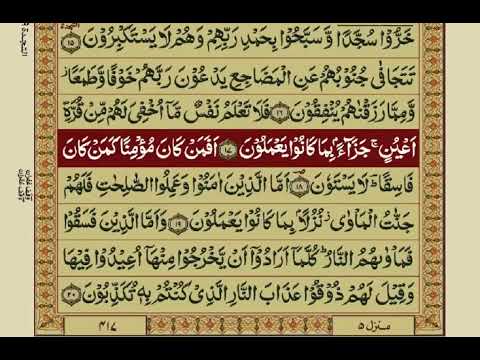 خَرُّوۡا سُجَّدًا وَّسَبَّحُوۡا بِحَمۡدِ رَبِّهِمۡ وَهُمۡ لَا يَسۡتَكۡبِرُوۡنَ ۩ ﴿۱۵﴾
تَتَجَافٰى جُنُوۡبُهُمۡ عَنِ الۡمَضَاجِعِ يَدۡعُوۡنَ رَبَّهُمۡ خَوۡفًا وَّطَمَعًا ز
وَّمِمَّا رَزَقۡنٰهُمۡ يُنۡفِقُوۡنَ ﴿۱۶﴾ فَلَا تَعۡلَمُ نَفۡسٌ مَّاۤ اُخۡفِىَ لَهُمۡ مِّنۡ قُرَّةِ
اَعۡيُنٍ ۚ جَزَآءًۢ بِمَا كَانُوۡا يَعۡمَلُوۡنَ ﴿۱۷﴾ اَفَمَنۡ كَانَ مُؤۡمِنًا كَمَنۡ كَانَ
فَاسِقًا ؕ لَا يَسۡتَوٗنَ ﴿۱۸﴾ اَمَّا الَّذِيۡنَ اٰمَنُوۡا وَعَمِلُوا الصّٰلِحٰتِ فَلَهُمۡ
جَنّٰتُ الۡمَاۡوٰى ز نُزُلًاۢ بِمَا كَانُوۡا يَعۡمَلُوۡنَ ﴿۱۹﴾ وَاَمَّا الَّذِيۡنَ فَسَقُوۡا
فَمَاۡوٰٮهُمُ النَّارُ ؕ كُلَّمَاۤ اَرَادُوۡۤا اَنۡ يَّخۡرُجُوۡا مِنۡهَاۤ اُعِيۡدُوۡا فِيۡهَا
وَقِيۡلَ لَهُمۡ ذُوۡقُوۡا عَذَابَ النَّارِ الَّذِىۡ كُنۡتُمۡ بِهٖ تُكَذِّبُوۡنَ ﴿۲۰﴾
منزل ۵
۴۱۷